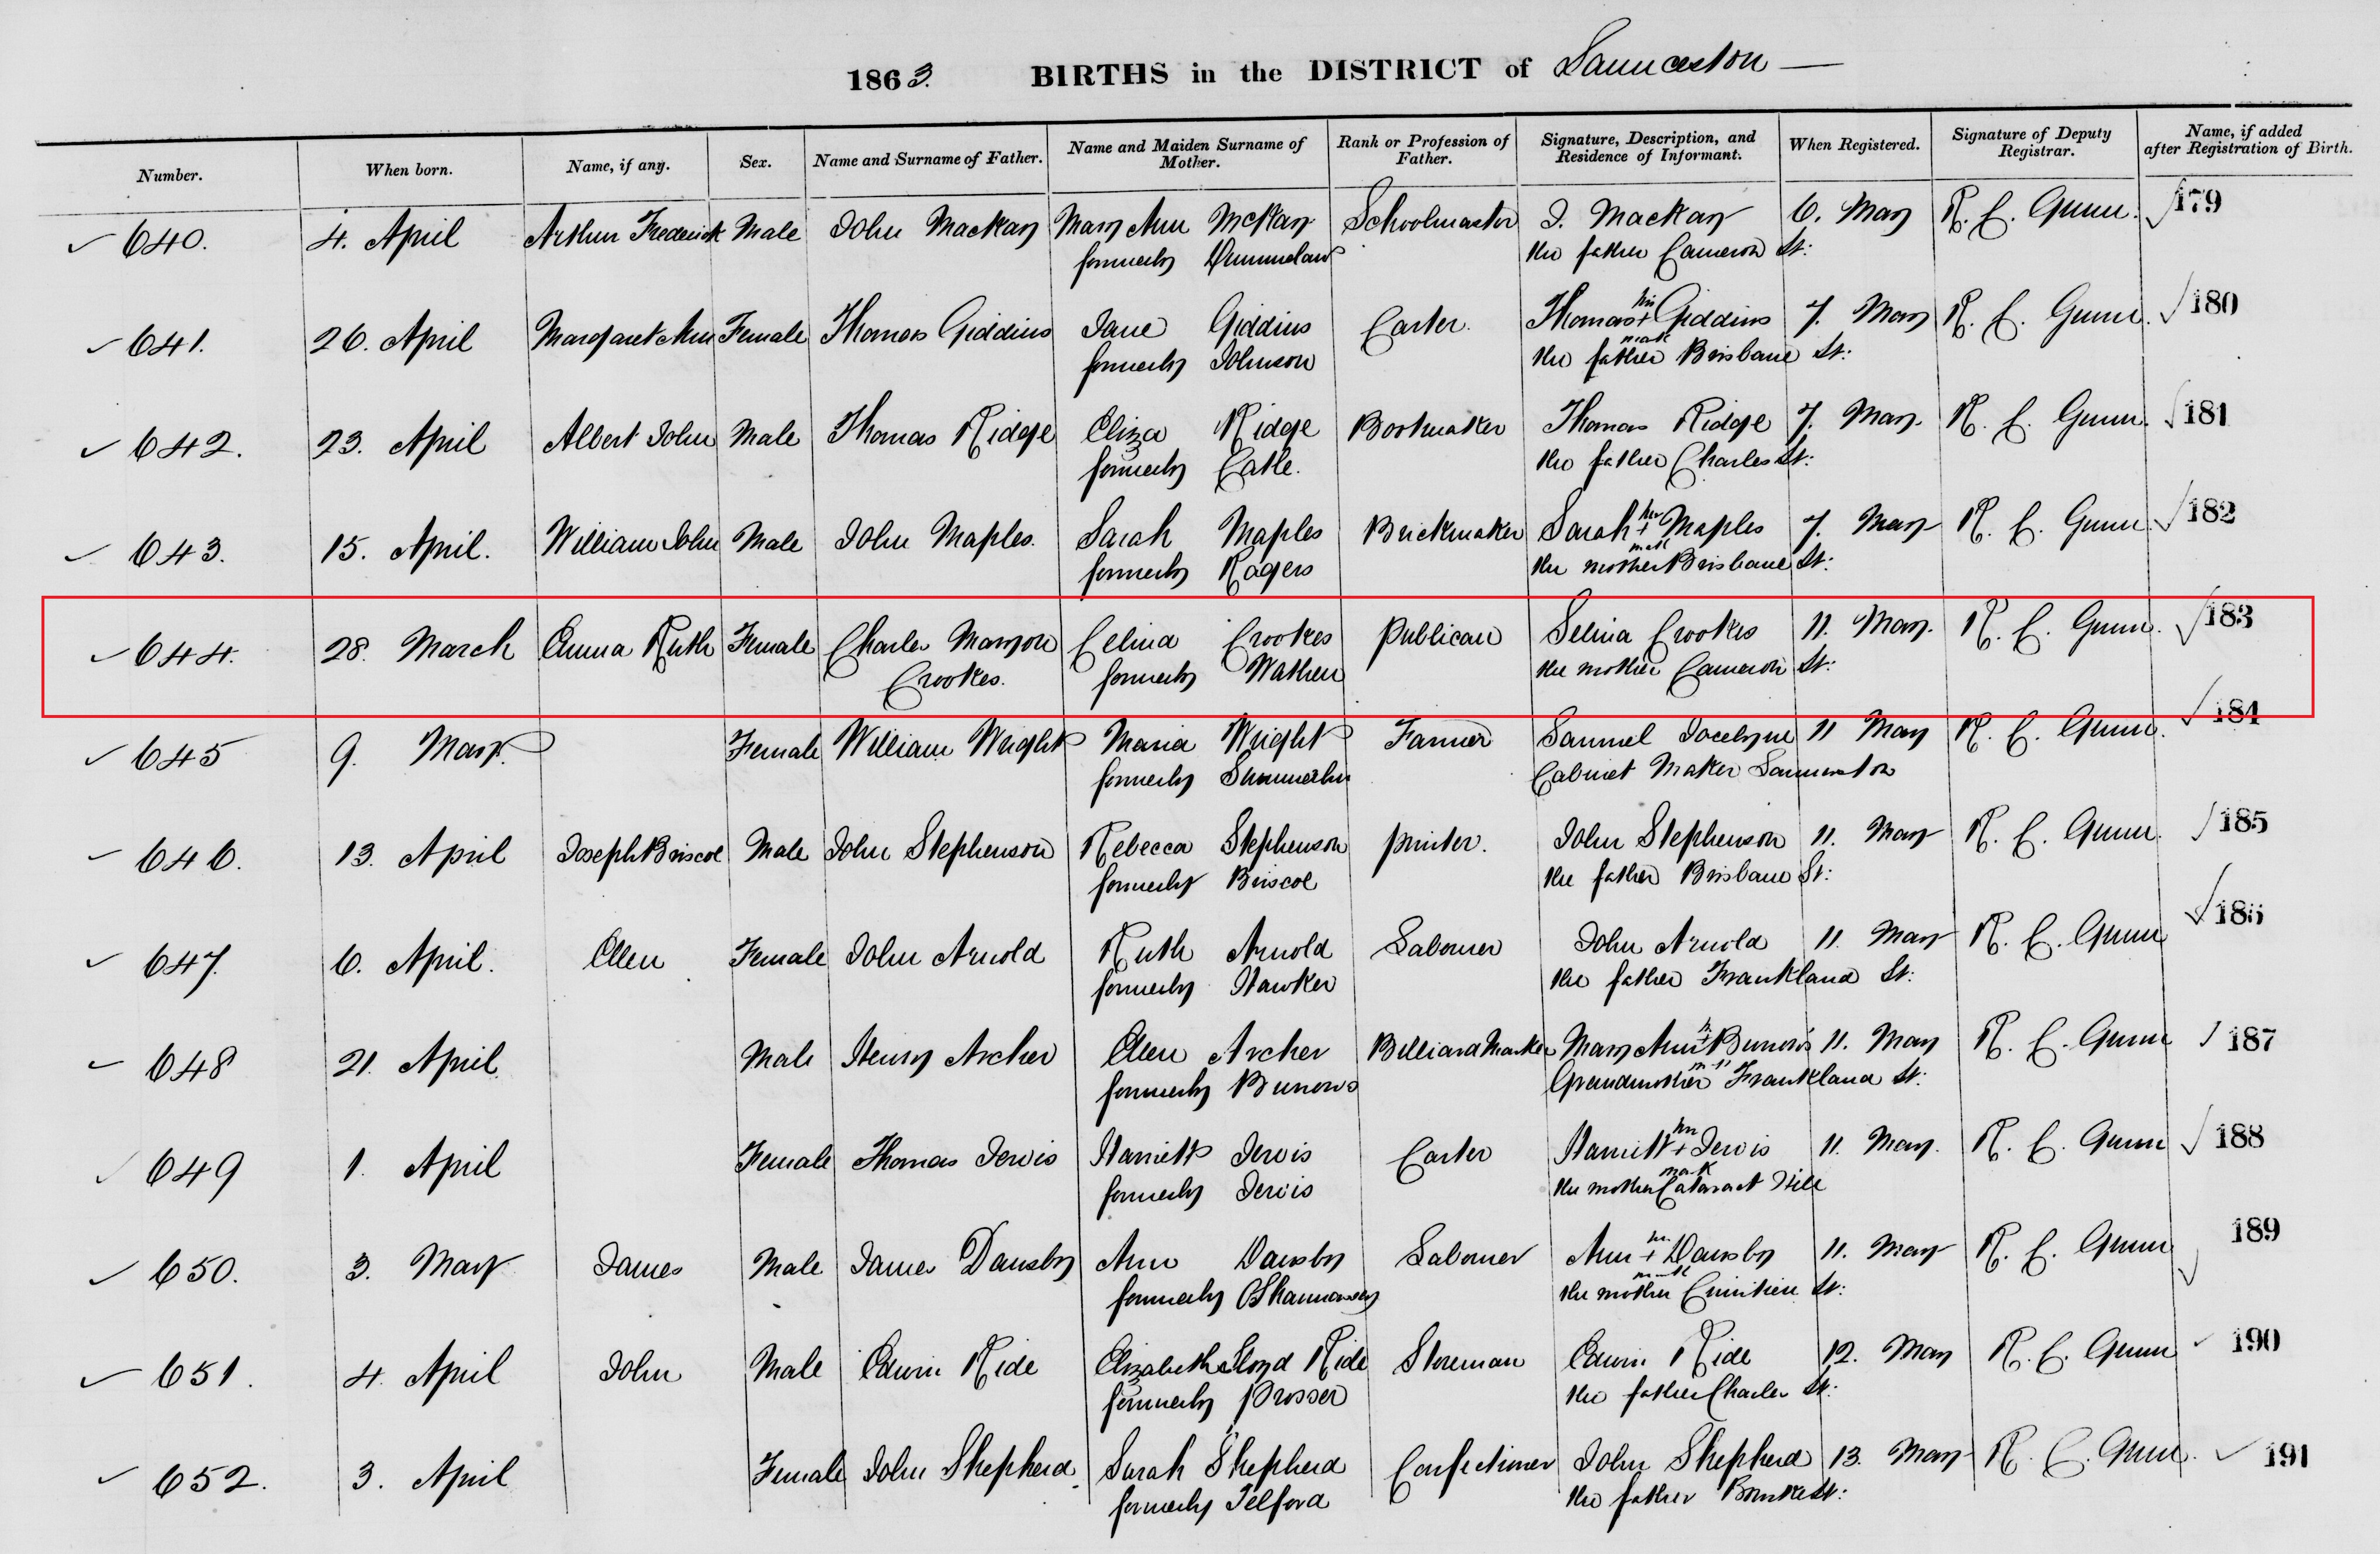 1863. BIRTHS in the DISTRICT of Launceston —
Number. When born. Name, if any. Sex. Name and Surname of Father. Name and Maiden Surname of Mother. Rank or Profession of Father. Signature, Description, and Residence of Informant. When Registered. Signature of Deputy Registrar. Name, if added after Registration of Birth.
640. 4. April Arthur Frederick Male John Mackay Mary Ann McKay Schoolmaster J. Mackay 6. May R. C. Gunn. 179
formerly the father Cameron St:
641. 26. April Margaret Ann Female Thomas Giddins Jane Giddins Carter. Thomas his + Giddins 7. May R. C. Gunn. 180
formerly Johnson mark the father Brisbane St:
642. 23. April Albert John Male Thomas Ridge Eliza Ridge Bootmaker Thomas Ridge 7. May. R. C. Gunn. 181
formerly the father Charles St:
643. 15. April. William John Male John Maples. Sarah Maples Brickmaker Sarah her + Maples 7. May R. C. Gunn 182
formerly Rogers mark the mother Brisbane St:
644. 28. March Emma Ruth Female Charles Manyon Celina Crookes Publican Selina Crookes 11. May. R. C. Gunn. 183
Crookes. formerly Wathen the mother Cameron St:
645 9. May. Female William Wright Maria Wright Farmer Samuel Jocelyne 11 May R. C. Gunn. 184
formerly Cabinet Maker Launceston
646. 13. April Joseph Briscoe Male John Stephenson Rebecca Stephenson printer. John Stephenson 11. May R. C. Gunn. 185
formerly Briscoe the father Brisbane St:
647. 6. April. Ellen Female John Arnold Ruth Arnold Laborer John Arnold 11. May R. C. Gunn 186
formerly Hawker the father Frankland St:
648 21. April Male Henry Archer Ellen Archer Billiard Marker Mary Ann + Burrows 11. May R. C. Gunn 187
formerly Burrows Grandmother Frankland St:
649 1. April Female Thomas Jervis Harriett Jervis Carter Harriett her + Jervis 11. May. R. C. Gunn 188
formerly Jervis mark the mother Cataract Hill
650. 3. May James Male James Dansby Ann Dansby Laborer Ann her + Dansby 11. May R. C. Gunn 189
formerly O'Shannassy mark the mother St:
651. 4. April John Male Edwin Ride Elizabeth Lloyd Ride Storeman Edwin Ride 12. May R. C. Gunn 190
formerly Prosser the father Charles St:
652. 3. April Female John Shepherd. Sarah Shepherd Confectioner John Shepherd 13. May R. C. Gunn. 191
formerly Telford the father Bourke St: